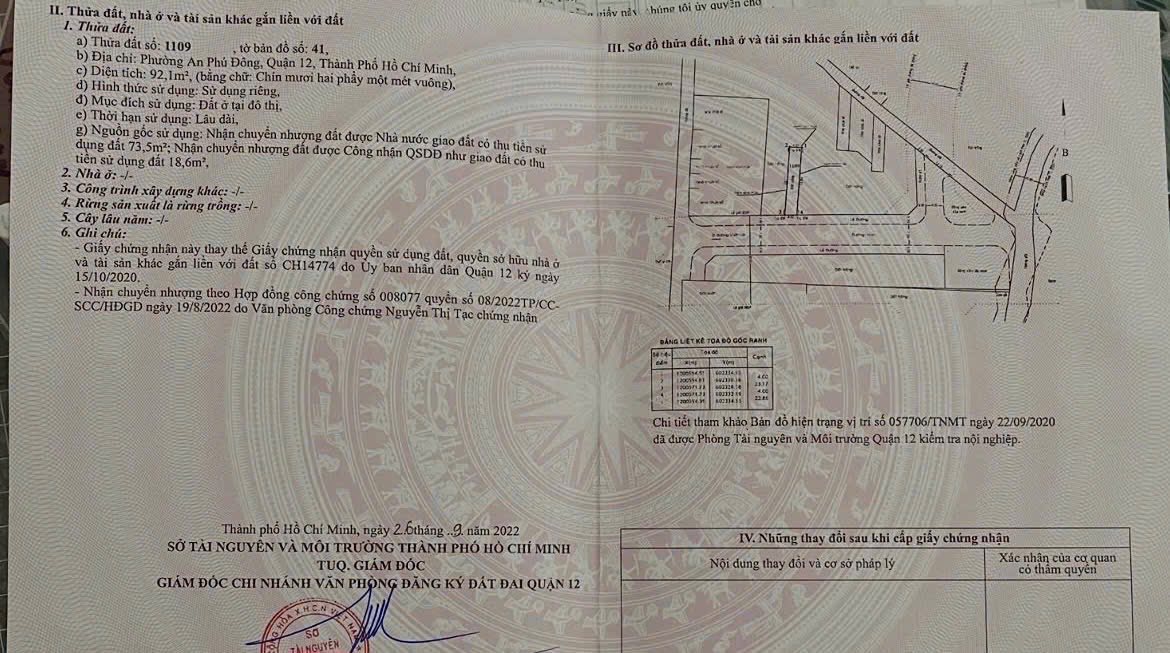 giấy này, chúng tôi ủy quyền cho
II. Thửa đất, nhà ở và tài sản khác gắn liền với đất
1. Thửa đất:
a) Thửa đất số: 1109 , tờ bản đồ số: 41,
b) Địa chỉ: Phường An Phú Đông, Quận 12, Thành Phố Hồ Chí Minh,
c) Diện tích: 92,1m², (bằng chữ: Chín mươi hai phẩy một mét vuông),
d) Hình thức sử dụng: Sử dụng riêng,
đ) Mục đích sử dụng: Đất ở tại đô thị,
e) Thời hạn sử dụng: Lâu dài,
g) Nguồn gốc sử dụng: Nhận chuyển nhượng đất được Nhà nước giao đất có thu tiền sử
dụng đất 73,5m²; Nhận chuyển nhượng đất được Công nhận QSDĐ như giao đất có thu
tiền sử dụng đất 18,6m²,
2. Nhà ở: -/-
3. Công trình xây dựng khác: -/-
4. Rừng sản xuất là rừng trồng: -/-
5. Cây lâu năm: -/-
6. Ghi chú:
- Giấy chứng nhận này thay thế Giấy chứng nhận quyền sử dụng đất, quyền sở hữu nhà ở
và tài sản khác gắn liền với đất số CH14774 do Ủy ban nhân dân Quận 12 ký ngày
15/10/2020.
- Nhận chuyển nhượng theo Hợp đồng công chứng số 008077 quyển số 08/2022TP/CC-
SCC/HĐGD ngày 19/8/2022 do Văn phòng Công chứng Nguyễn Thị Tạc chứng nhận
Thành phố Hồ Chí Minh, ngày 26 tháng 9 năm 2022
SỞ TÀI NGUYÊN VÀ MÔI TRƯỜNG THÀNH PHỐ HỒ CHÍ MINH
TUQ. GIÁM ĐỐC
GIÁM ĐỐC CHI NHÁNH VĂN PHÒNG ĐĂNG KÝ ĐẤT ĐAI QUẬN 12
SỞ
TÀI NGUYÊN
III. Sơ đồ thửa đất, nhà ở và tài sản khác gắn liền với đất
B
BẢNG LIỆT KÊ TỌA ĐỘ GÓC RANH
Số hiệu điểm Tọa độ Cạnh
X(m) Y(m)
Chi tiết tham khảo Bản đồ hiện trạng vị trí số 057706/TNMT ngày 22/09/2020
đã được Phòng Tài nguyên và Môi trường Quận 12 kiểm tra nội nghiệp.
IV. Những thay đổi sau khi cấp giấy chứng nhận
Nội dung thay đổi và cơ sở pháp lý
Xác nhận của cơ quan
có thẩm quyền